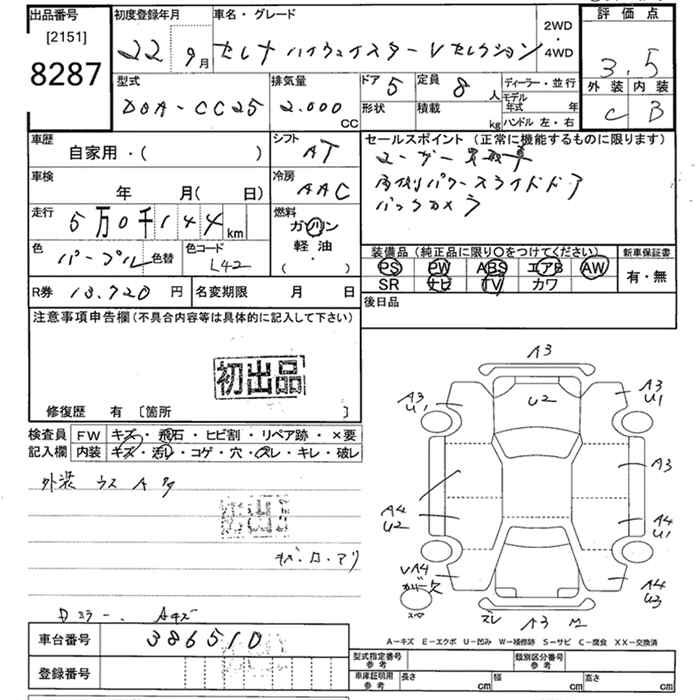 出品番号
[2151]
8287
初度登録年月
22年 9月
車名・グレード
セレナ ハイウェイスターVセレクション
2WD
・
4WD
評価点
3.5
外装 内装
C B
型式
DBA-CC25
排気量
2.000 CC
ドア 5
定員 8人
形状
積載 kg
ディーラー・並行
モデル年式 年
ハンドル 左・右
車歴
自家用・( )
シフト
AT
車検
年 月( 日)
冷房
AAC
走行
5万0千144km
燃料
ガソリン
軽油・
( ・ )
色
パープル
色替
色コード
L42
R券 13.720円
名変期限 月 日
セールスポイント (正常に機能するものに限ります)
ユーザー買取車
両側パワースライドドア
バックカメラ
装備品 (純正品に限り○をつけてください)
PS PW ABS エアB AW
SR ナビ TV カワ
新車保証書
有・無
後日品
注意事項申告欄(不具合内容等は具体的に記入して下さい)
初出品
修復歴 有 [箇所 ]
検査員記入欄
FW キズ・飛石・ヒビ割・リペア跡・×要
内装 キズ・汚レ・コゲ・穴・スレ・キレ・破レ
外装 ウス A タ
Dミラー. Aキズ
車台番号 386510
登録番号
A3
U2
A3
U1
A3
U1
A3
A4
U2
A4
U1
VA4
A4
U3
スペ
ズレ
A3
A-キズ E-エクボ U-凹み W-補修跡 S-サビ C-腐食 XX-交換済
型式指定番号
参考
類別区分番号
参考
車庫証明用
参考
長さ cm
幅 cm
高さ cm